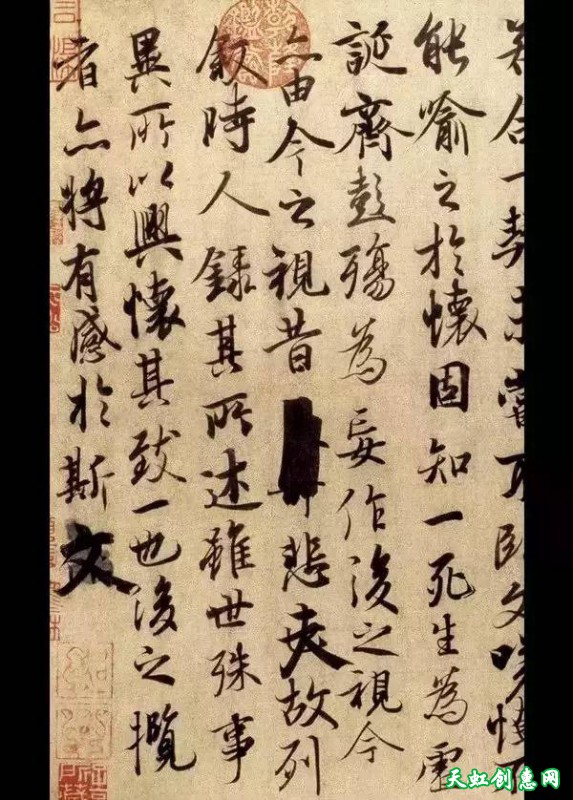 若合一契未嘗不臨文嗟悼不
能喻之於懷固知一死生為虛
誕齊彭殤為妄作後之視今
亦由今之視昔悲夫故列
敘時人錄其所述雖世殊事
異所以興懷其致一也後之攬
者亦將有感於斯文
天虹创意网